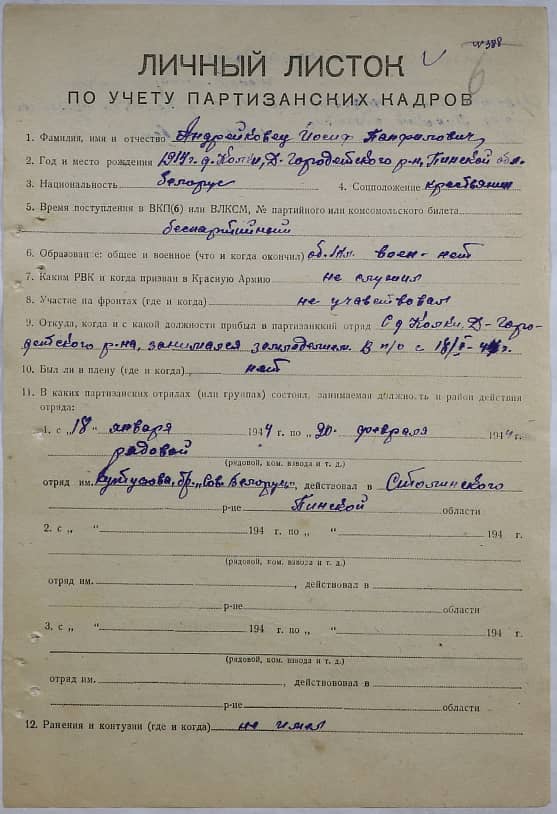 №388
6
ЛИЧНЫЙ ЛИСТОК
ПО УЧЕТУ ПАРТИЗАНСКИХ КАДРОВ
1. Фамилия, имя и отчество Андрейковец Иосиф Панфилович
2. Год и место рождения 1914 г. д. Колки, Д-Городетского р-н, Пинской обл.
3. Национальность белорус 4. Соцположение крестьянин
5. Время поступления в ВКП(б) или ВЛКСМ, № партийного или комсомольского билета
беспартийный
6. Образование: общее и военное (что и когда окончил) воен- нет
7. Каким РВК и когда призван в Красную Армию не служил
8. Участие на фронтах (где и когда) не учавствовал
9. Откуда, когда и с какой должности прибыл в партизанский отряд С д Колки, Д-Горо-
детского р-на, занимался земледелием. В п/о с 18/I-44г.
10. Был ли в плену (где и когда) нет
11. В каких партизанских отрядах (или группах) состоял, занимаемая должность и район действия
отряда:
1. с „18" января 1944 г. по „20" февраля 1944 г.
рядовой
(рядовой, ком. взвода и т. д.)
отряд им. Кутузова, бр. „Сов. Белорус", действовал в Столинского
р-не Пинской области
2. с „ " 194 г. по „ " 194 г.
(рядовой, ком. взвода и т. д.)
отряд им. , действовал в
р-не области
3. с „ " 194 г. по „ " 194 г.
(рядовой, ком. взвода и т. д.)
отряд им. , действововал в
р-не области
12. Ранения и контузии (где и когда) не имел